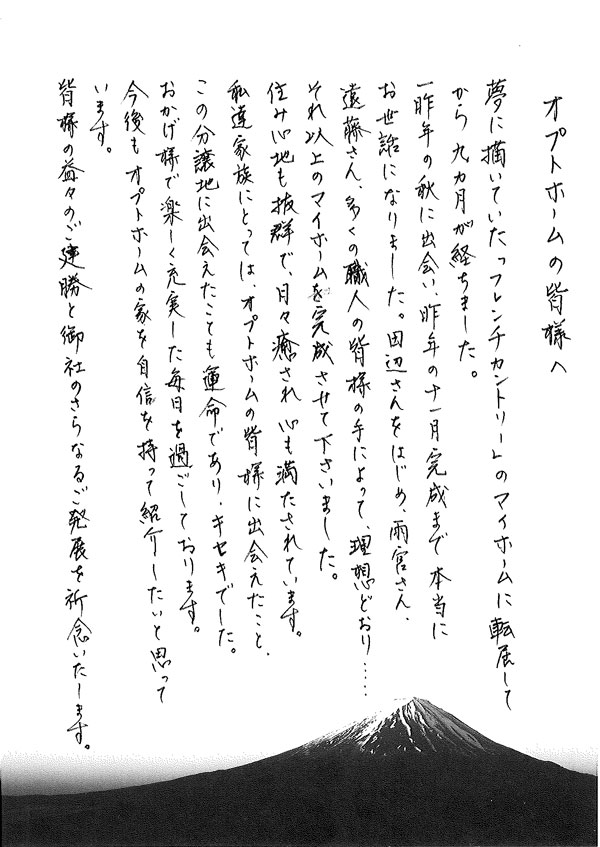 オプトホームの皆様へ
夢に描いていた「フレンチカントリー」のマイホームに転居して
から九カ月が経ちました。
一昨年の秋に出会い、昨年の十一月完成まで本当に
お世話になりました。田辺さんをはじめ、雨宮さん、
遠藤さん、多くの職人の皆様の手によって、理想どおり……
それ以上のマイホームを完成させて下さいました。
住み心地も抜群で、日々癒され心も満たされています。
私達家族にとっては、オプトホームの皆様に出会えたこと、
この分譲地に出会えたことも運命であり、キセキでした。
おかげ様で楽しく充実した毎日を過ごしております。
今後もオプトホームの家を自信を持って紹介したいと思って
います。
皆様の益々のご健勝と御社のさらなるご発展を祈念いたします。